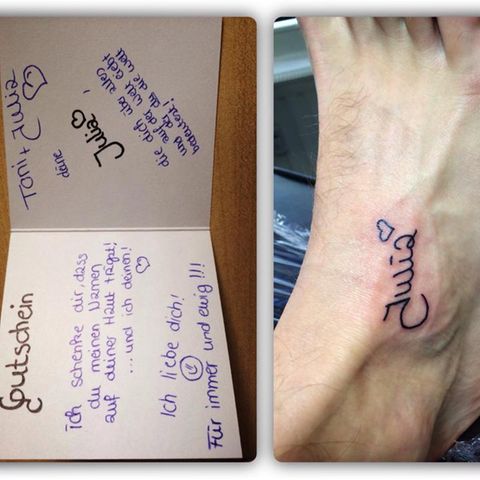 Gutschein
ich schenke dir, dass
du meinen Namen
auf deiner Haut trägst!
... und ich deinen! ♡
Ich liebe dich!
Für immer und ewig !!!
Toni + Julia ♡
deine
Julia,
die dich über alles
auf der Welt liebt
und der du die Welt
bedeutest!
Julia